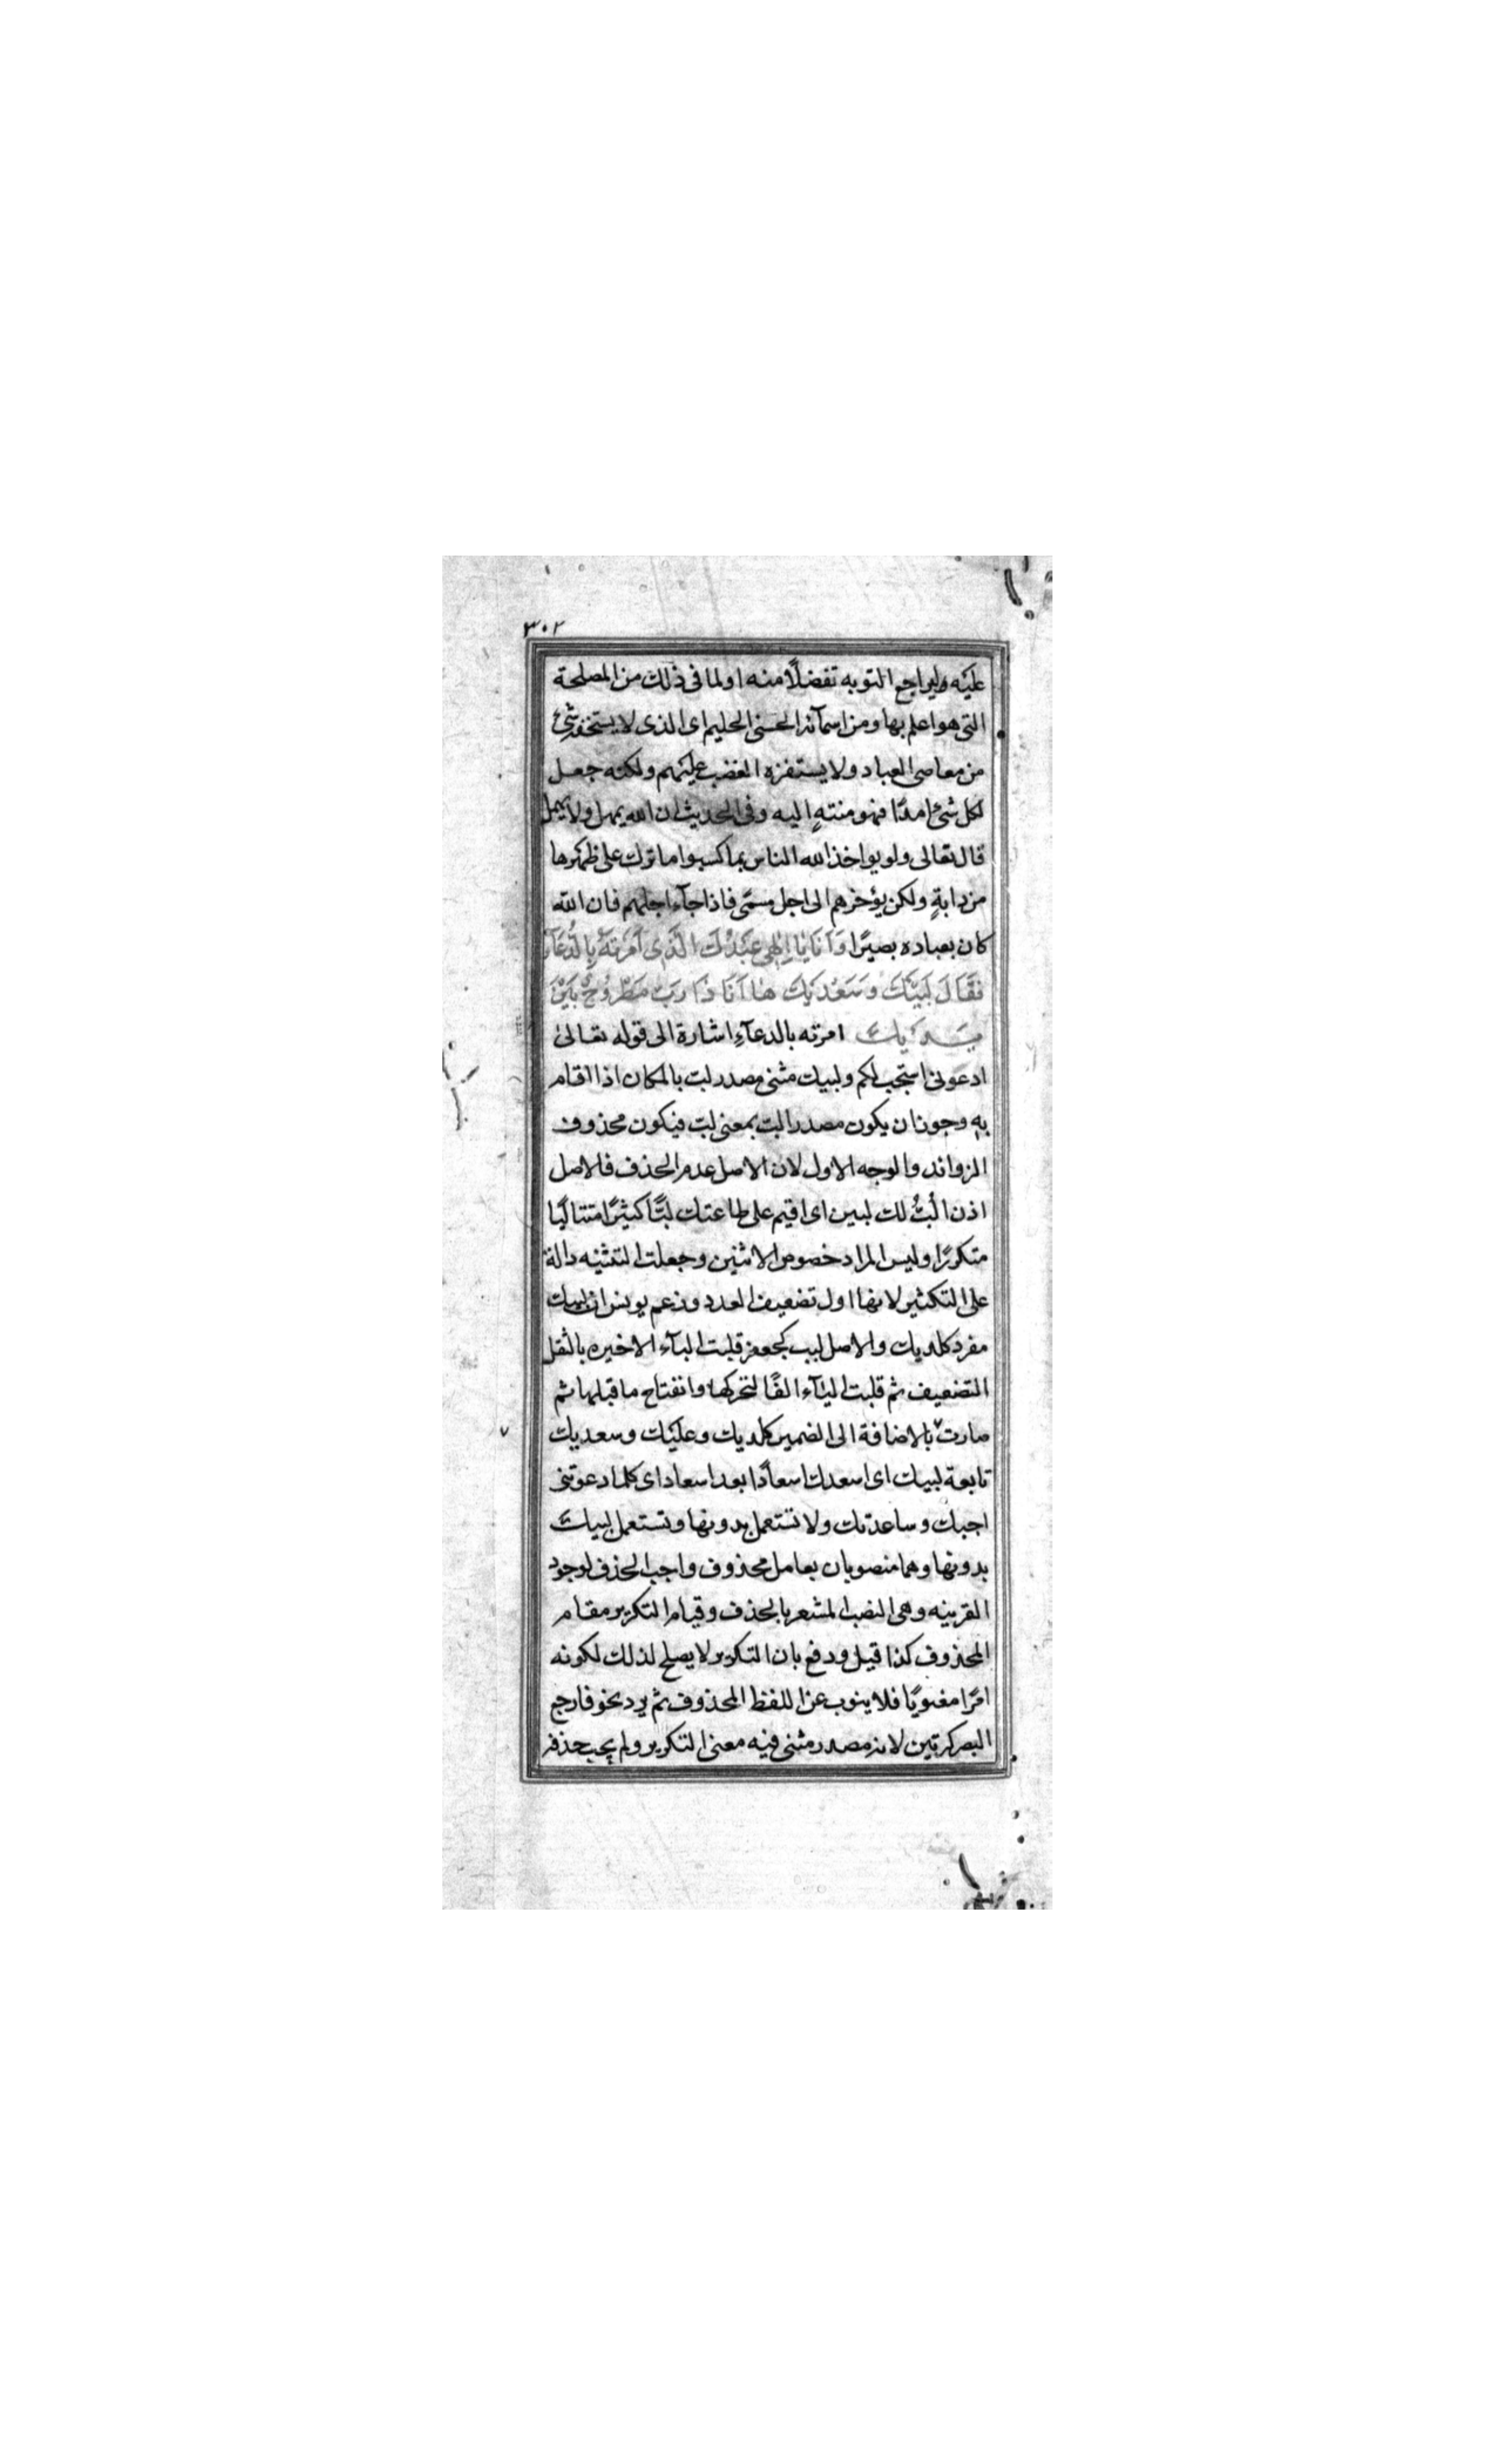 ٣٠٢
عليه وليراجع التوبه تفضلًا منه اولما فى ذلك من المصلحة
التى هو اعلم بها ومن اسمآئه الحسنى الحليم اى الذى لا يستخفه شئ
من معاصى العباد ولا يستفزه الغضب عليهم ولكنه جعل
لكل شئ امدًا فهو منتهٍ اليه وفى الحديث ان الله يمهل ولا يهمل
قال تعالى ولو يواخذ الله الناس بما كسبوا ما ترك على ظهرها
من دابةٍ ولكن يؤخرهم الى اجل مسمّى فاذا جآء اجلهم فان الله
كان بعباده بصيرًا وَاَنَا يٰا اِلٰهِى عَبْدُكَ الَّذِى اَمَرْتَهُ بِالدُّعَآءِ
فَقَالَ لَبَّيْكَ وَسَعْدَيْكَ هٰا اَنَا ذٰا رَبِّ مَطْرُوحٌ بَيْنَ
يَدَيْكَ امرته بالدعآءِ اشارة الى قوله تعالىٰ
ادعونى استجب لكم ولبيك مثنى مصدر لبّ بالمكان اذا اقام
بهٖ وجوز ان يكون مصدر البّ بمعنى لبّ فيكون محذوف
الزوائد والوجه الاول لان الاصل عدم الحذف فالاصل
اذن اَلُبُّ لك لبين اى اقيم على طاعتك لبًّا كثيرًا متتاليًا
متكررًا وليس المراد خصوص الاثنين وجعلت التثنيه دالة
على التكثير لانها اول تضعيف العدد وزعم يونس ان لبيك
مفرد كلديك والاصل لبب كجعفر قلبت البآء الاخيره يا لثقل
التضعيف ثم قلبت اليآء الفًا لتحركها وانفتاح ما قبلها ثم
صارت يا بالاضافة الى الضمير كلديك وعليك وسعديك
تابعة لبيك اى اسعدك اسعادًا بعد اسعاد اى كلما دعوتنى
اجبتك وساعدتك ولا تستعمل بدونها وتستعمل لبيك
بدونها وهما منصوبان بعامل محذوف واجب الحذف لوجود
القرينه وهى النصب المشعر بالحذف وقيام التكرير مقام
المحذوف كذا قيل ودفع بان التكرير لا يصلح لذلك لكونه
امرًا معنويًا فلا ينوب عن اللفظ المحذوف ثم يرد نحو فارجع
البصر كرتين لانه مصدر مثنى فيه معنى التكرير ولم يجب حذف